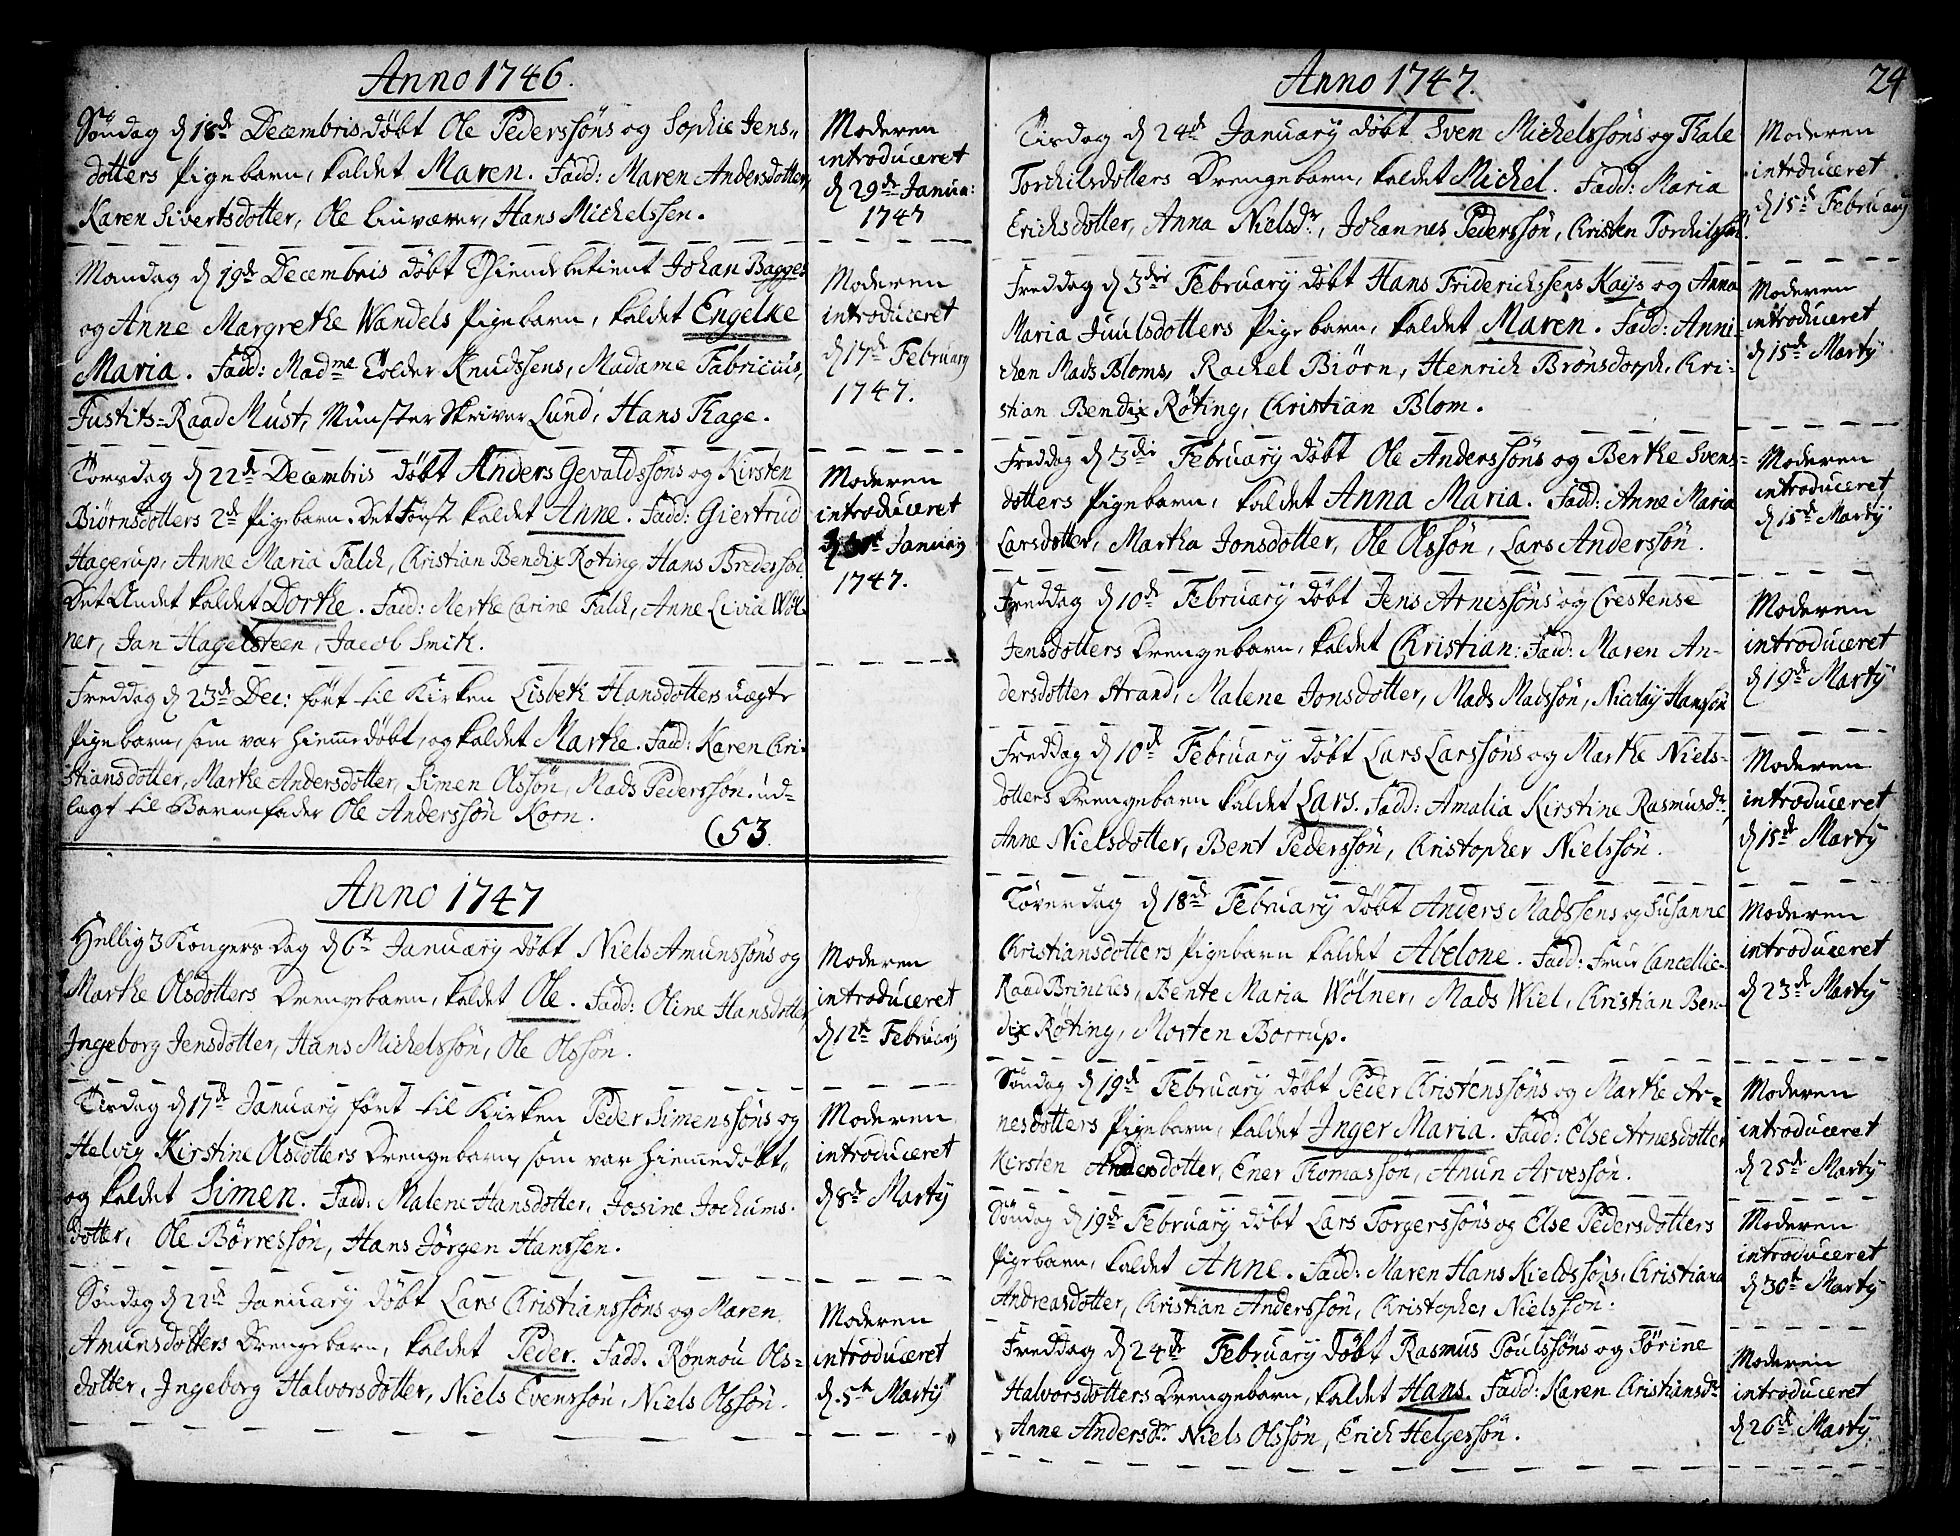 Anno 1746.
Søndag d 18de Decembris døbt Ole Pederssøns og Sophie Jens„
dotters Pigebarn, kaldet Maren. Fadd: Maren Andersdotter,
Karen Sivertsdotter, Ole Linværer, Hans Michelssen.
Moderen
introduceret
d 29de Janua:
1747
Mandag d 19de Decembris døbt Thiendebetient Johan Bagges
og Anne Margrethe Wandels Pigebarn, kaldet Engelke
Maria. Fadd: Madme Tolder Knudssens, Madame Fabricius,
Justits=Raad Must, Münster Skriver Lund, Hans Thage.
Moderen
introduceret
d 17de February
1747.
Torsdag d 22de Decembris døbt Anders Gevaldssøns og Kirsten
Biørnsdotters 2de Pigebarn. Det Først kaldet Anne. Fadd: Giertrud
Hagerup, Anne Maria Falch, Christian Bendix Røting, Hans Brederssøn.
Det Andet kaldet Dorthe. Fadd: Merthe Carine Falch, Anne Livia Wøl-
ner, Jan Hagelsteen, Jacob Smith.
Moderen
introduceret
January
1747.
Freddag d 23de Dec: ført til Kirken Lisbeth Hansdotters uægte
Pigebarn, som var hiemmedøbt, og kaldet Marthe. Fadd: Karen Chri-
stiansdotter, Marthe Andersdotter, Simen Olssøn, Mads Pederssøn. ud-
lagt til Barnefader Ole Anderssøn Korn.
(53
Anno 1747
Hellig 3 Kongers Dag d 6te January døbt Niels Amunssøns og
Marthe Olsdotters Drengebarn, kaldet Ole. Fadd: Oline Hansdotter,
Ingeborg Jensdotter, Hans Michelssøn, Ole Olssøn.
Moderen
introduceret
d 12te February
Tirsdag d 17de January ført til Kirken Peder Simenssøns og
Helvig Kirstine Olsdotters Drengebarn, som var hiemmedøbt,
og kaldet Simen. Fadd: Malene Hansdotter, Josine Jochums-
dotter, Ole Børressøn, Hans Jørgen Hanssen.
Moderen
introduceret
d 8de Martÿ
Søndag d 22de January døbt Lars Christianssøns og Maren
Amunsdotters Drengebarn, kaldet Peder. Fadd. Rønnou Ols-
dotter, Ingeborg Halvorsdotter, Niels Evenssøn, Niels Olssøn.
Moderen
introduceret
d. 5te Martÿ
Anno 1747.
24
Tirsdag d 24de January døbt Sven Michelssøns og Thale
Torchilsdotters Drengebarn, kaldet Michel. Fadd: Maria
Erichsdotter, Anna Nielsdr, Johannes Pederssøn, Christen Torchilssøn.
Moderen
introduceret
d 15de February
Freddag d 3die February døbt Hans Friderichssens Kays og Anna
Maria Juulsdotters Pigebarn, kaldet Maren. Fadd: Anni
chen Mads Bloms, Rachel Biørn, Henrich Brønsdorph, Chri-
stian Bendix Røting, Christian Blom.
Moderen
introduceret
d 15de Martÿ
Freddag d 3die February døbt Ole Anderssøns og Berthe Svens-
dotters Pigebarn, kaldet Anna Maria. Fadd: Anne Maria
Larsdotter, Martha Jonsdotter, Ole Olssøn, Lars Anderssøn.
Moderen
introduceret
d 15de Martÿ
Freddag d 10de February døbt Jens Arnessøns og Crestense
Jensdotters Drengebarn, kaldet Christian: Fadd: Maren An-
dersdotter Strand, Malene Jonsdotter, Mads Madssøn, Nicolaÿ Hanssøn
Moderen
introduceret
d 19de Martÿ
Freddag d 10de February døbt Lars Larssøns og Marthe Niels-
dotters Drengebarn kaldet Lars. Fadd: Amalia Kirstine Rasmusdr,
Anne Nielsdotter, Bent Pederssøn, Christopher Nielssøn.
Moderen
introduceret
d 15de Martÿ
Løverdag d 18de February døbt Anders Madssens og Susanne
Christiansdotters Pigebarn kaldet Abelone. Fadd: Frue Cancellie-
Raad Brinches, Bente Maria Wølner, Mads Wiel, Christian Ben-
dix Røting, Morten Borrup.
Moderen
introduceret
d 23de Martÿ
Søndag d 19de February døbt Peder Christenssøns og Marthe Ar-
nesdotters Pigebarn, kaldet Inger Maria. Fadd: Else Arnesdotter
Kirsten Andersdotter, Ener Thomassøn, Anun Arvessøn.
Moderen
introduceret
d 25de Martÿ
Søndag d 19de February døbt Lars Torgerssøns og Else Pedersdotters
Pigebarn, kaldet Anne. Fadd: Maren Hans Kieldssøns, Christiana
Andreasdotter, Christian Anderssøn, Christopher Nielssøn.
Moderen
introduceret
d 30te Martÿ
Freddag d 24de February døbt Rasmus Poulssøns og Sørine
Halvorsdotters Drengebarn, kaldet Hans. Fadd: Karen Christiansdr
Anne Andersdr. Niels Olssøn, Erich Helgessøn.
Moderen
introduceret
d 26de Martÿ